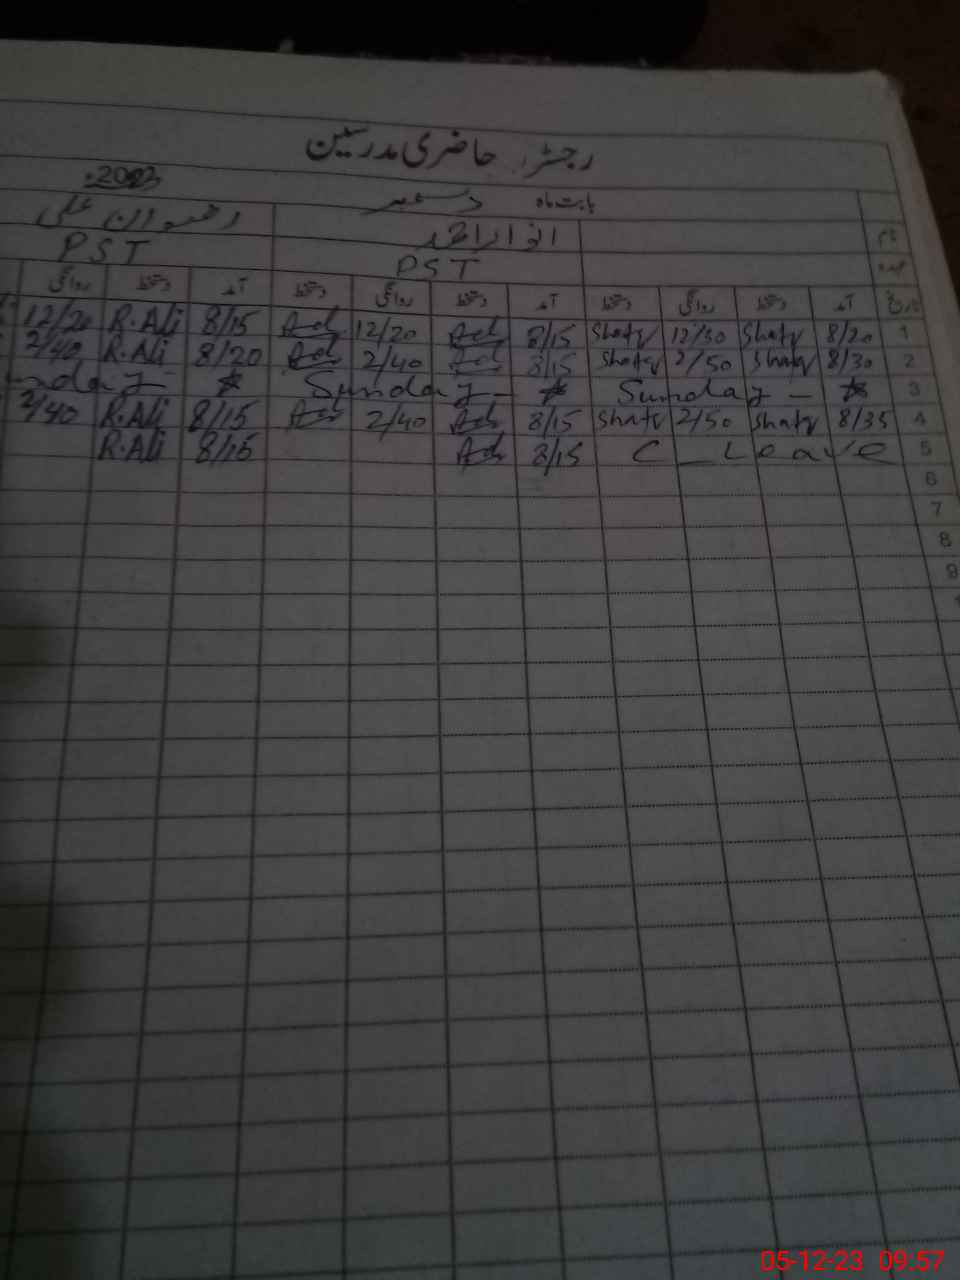 رجسٹر حاضری مدرسین
بابت ماہ دسمبر 2023
نام انوار احمد رضوان علی
عہدہ PST PST
تاریخ آمد دستخط روانگی دستخط آمد دستخط روانگی دستخط آمد دستخط روانگی
1 8/20 Shafq 12/30 Shafq 8/15 12/20 8/15 R.Ali 12/20
2 8/30 Shafq 2/50 Shafq 8/15 2/40 8/20 R.Ali 2/40
3 Sunday - Sunday - nday -
4 8/35 Shafq 2/50 Shafq 8/15 2/40 8/15 R.Ali 2/40
5 C_Leave 8/15 8/15 R.Ali
6
7
8
9
05-12-23 09:57